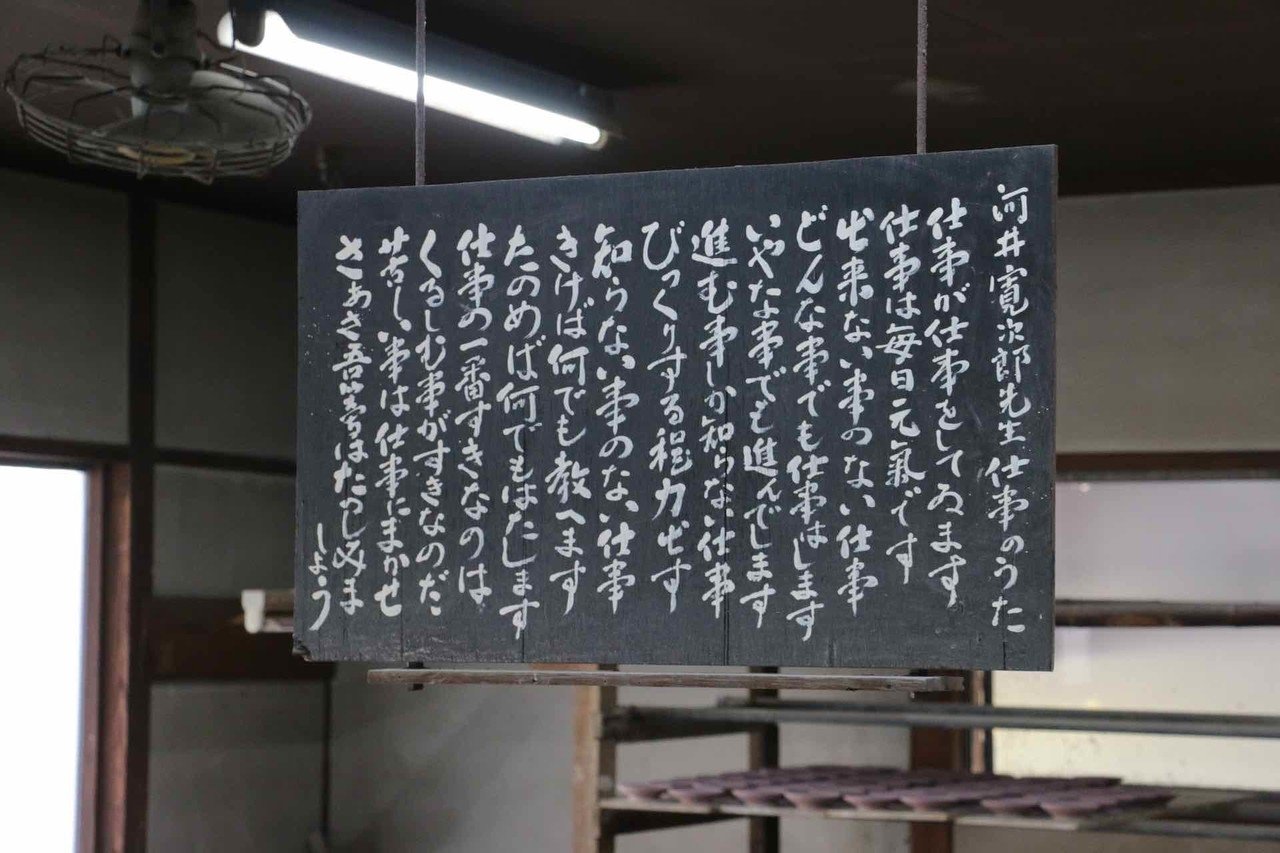 河井寛次郎先生 仕事のうた
仕事が仕事をしてゐます
仕事は毎日元氣です
出来ない事のない仕事
どんな事でも仕事はします
いやな事でも進んでします
進む事しか知らない仕事
びっくりする程力出す
知らない事のない仕事
きけば何でも教へます
たのめば何でもはたします
仕事の一番すきなのは
くるしむ事がすきなのだ
苦しい事は仕事にまかせ
さあさ吾等はたのしみま
しょう